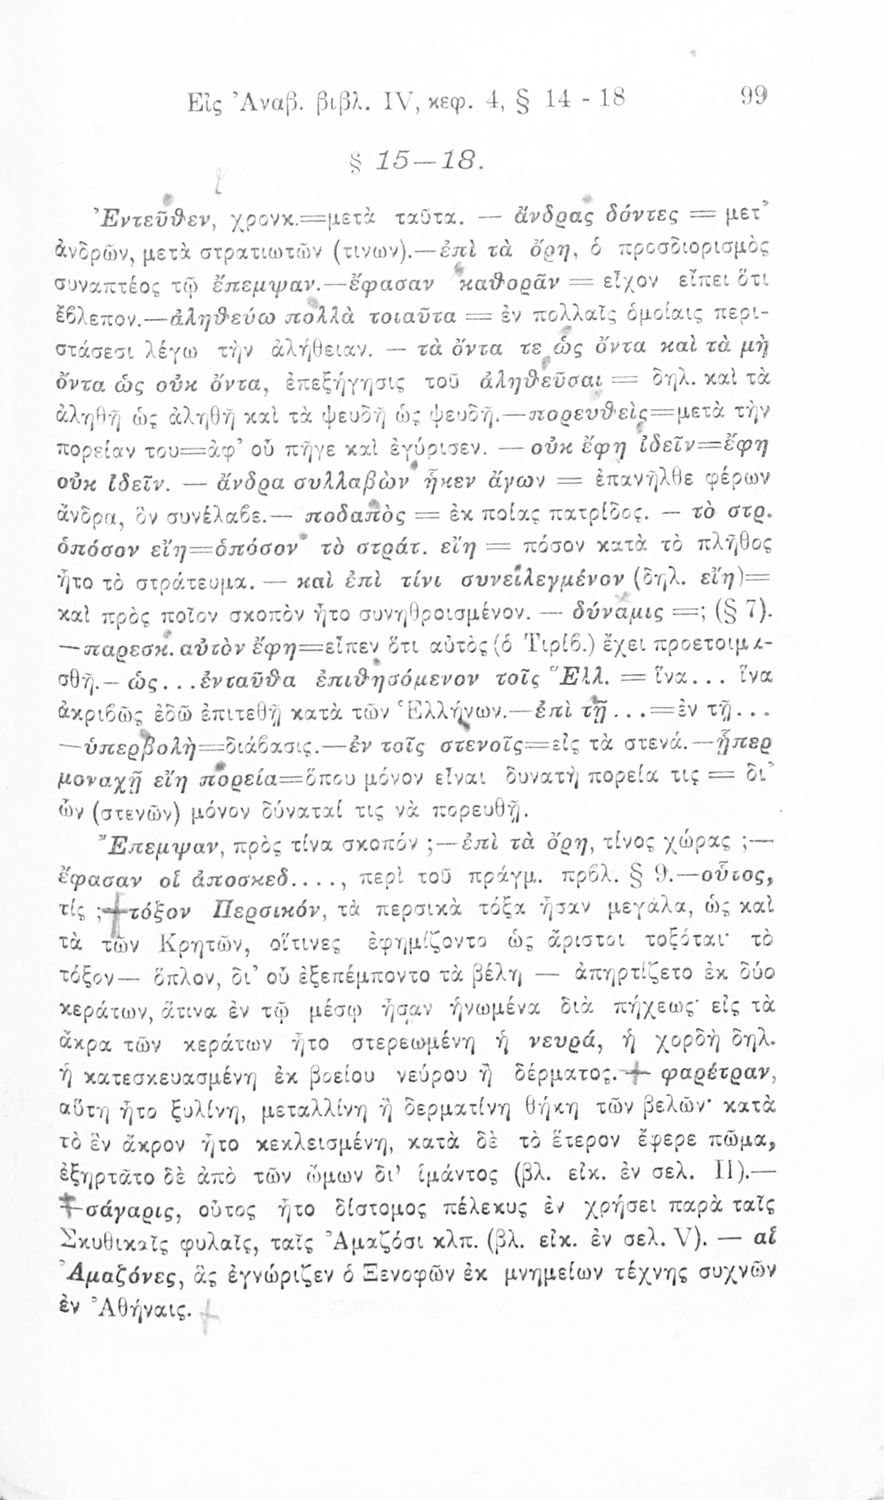 Εἰς Ἀναβ. βιβλ. IV, κεφ. 4, § 14 - 18 99
§ 15—18.
Ἐντεῦθεν, χρονικ.=μετὰ ταῦτα. — ἄνδρας δόντες = μετ'
ἀνδρῶν, μετὰ στρατιωτῶν (τινων).—ἐπὶ τὰ ὄρη, ὁ προσδιορισμὸς
συναπτέος τῷ ἔπεμψαν.—ἔφασαν καθορᾶν = εἶχον εἴπει ὅτι
ἔβλεπον.—ἀληθεύω πολλὰ τοιαῦτα = ἐν πολλαῖς ὁμοίαις περι-
στάσεσι λέγω τὴν ἀλήθειαν. — τὰ ὄντα τε ὡς ὄντα καὶ τὰ μὴ
ὄντα ὡς οὐκ ὄντα, ἐπεξήγησις τοῦ ἀληθεῦσαι = δηλ. καὶ τὰ
ἀληθῆ ὡς ἀληθῆ καὶ τὰ ψευδῆ ὡς ψευδῆ.—πορευθεὶς=μετὰ τὴν
πορείαν του=ἀφ' οὗ πῆγε καὶ ἐγύρισεν. — οὐκ ἔφη ἰδεῖν=ἔφη
οὐκ ἰδεῖν. — ἄνδρα συλλαβὼν ἧκεν ἄγων = ἐπανῆλθε φέρων
ἄνδρα, ὃν συνέλαβε.— ποδαπὸς = ἐκ ποίας πατρίδος. — τὸ στρ.
ὁπόσον εἴη=ὁπόσον τὸ στράτ. εἴη = πόσον κατὰ τὸ πλῆθος
ἦτο τὸ στράτευμα. — καὶ ἐπὶ τίνι συνειλεγμένον (δηλ. εἴη)=
καὶ πρὸς ποῖον σκοπὸν ἦτο συνηθροισμένον. — δύναμις =; (§ 7).
—παρεσκ. αὐτὸν ἔφη=εἶπεν ὅτι αὐτὸς (ὁ Τιρίβ.) ἔχει προετοιμα-
σθῆ.— ὡς. . .ἐνταῦθα ἐπιθησόμενον τοῖς Ἕλλ. = ἵνα... ἵνα
ἀκριβῶς ἐδῶ ἐπιτεθῇ κατὰ τῶν Ἑλλήνων.—ἐπὶ τῇ . . .=ἐν τῇ...
—ὑπερβολὴ=διάβασις.—ἐν τοῖς στενοῖς=εἰς τὰ στενά.—ᾗπερ
μοναχῇ εἴη πορεία=ὅπου μόνον εἶναι δυνατὴ πορεία τις = δι'
ὧν (στενῶν) μόνον δύναταί τις νὰ πορευθῇ.
Ἔπεμψαν, πρὸς τίνα σκοπόν ;—ἐπὶ τὰ ὄρη, τίνος χώρας ;—
ἔφασαν οἱ ἀποσκεδ...., περὶ τοῦ πράγμ. πρβλ. § 9.—οὗτος,
τίς ;—τόξον Περσικόν, τὰ περσικὰ τόξα ἦσαν μεγάλα, ὡς καὶ
τὰ τῶν Κρητῶν, οἵτινες ἐφημίζοντο ὡς ἄριστοι τοξόται· τὸ
τόξον— ὅπλον, δι' οὗ ἐξεπέμποντο τὰ βέλη — ἀπηρτίζετο ἐκ δύο
κεράτων, ἅτινα ἐν τῷ μέσῳ ἦσαν ἡνωμένα διὰ πήχεως· εἰς τὰ
ἄκρα τῶν κεράτων ἦτο στερεωμένη ἡ νευρά, ἡ χορδὴ δηλ.
ἡ κατεσκευασμένη ἐκ βοείου νεύρου ἢ δέρματος.— φαρέτραν,
αὕτη ἦτο ξυλίνη, μεταλλίνη ἢ δερματίνη θήκη τῶν βελῶν· κατὰ
τὸ ἓν ἄκρον ἦτο κεκλεισμένη, κατὰ δὲ τὸ ἕτερον ἔφερε πῶμα,
ἐξηρτᾶτο δὲ ἀπὸ τῶν ὤμων δι' ἱμάντος (βλ. εἰκ. ἐν σελ. II).—
—σάγαρις, οὗτος ἦτο δίστομος πέλεκυς ἐν χρήσει παρὰ ταῖς
Σκυθικαῖς φυλαῖς, ταῖς Ἀμαζόσι κλπ. (βλ. εἰκ. ἐν σελ. V). — αἱ
Ἀμαζόνες, ἃς ἐγνώριζεν ὁ Ξενοφῶν ἐκ μνημείων τέχνης συχνῶν
ἐν Ἀθήναις.